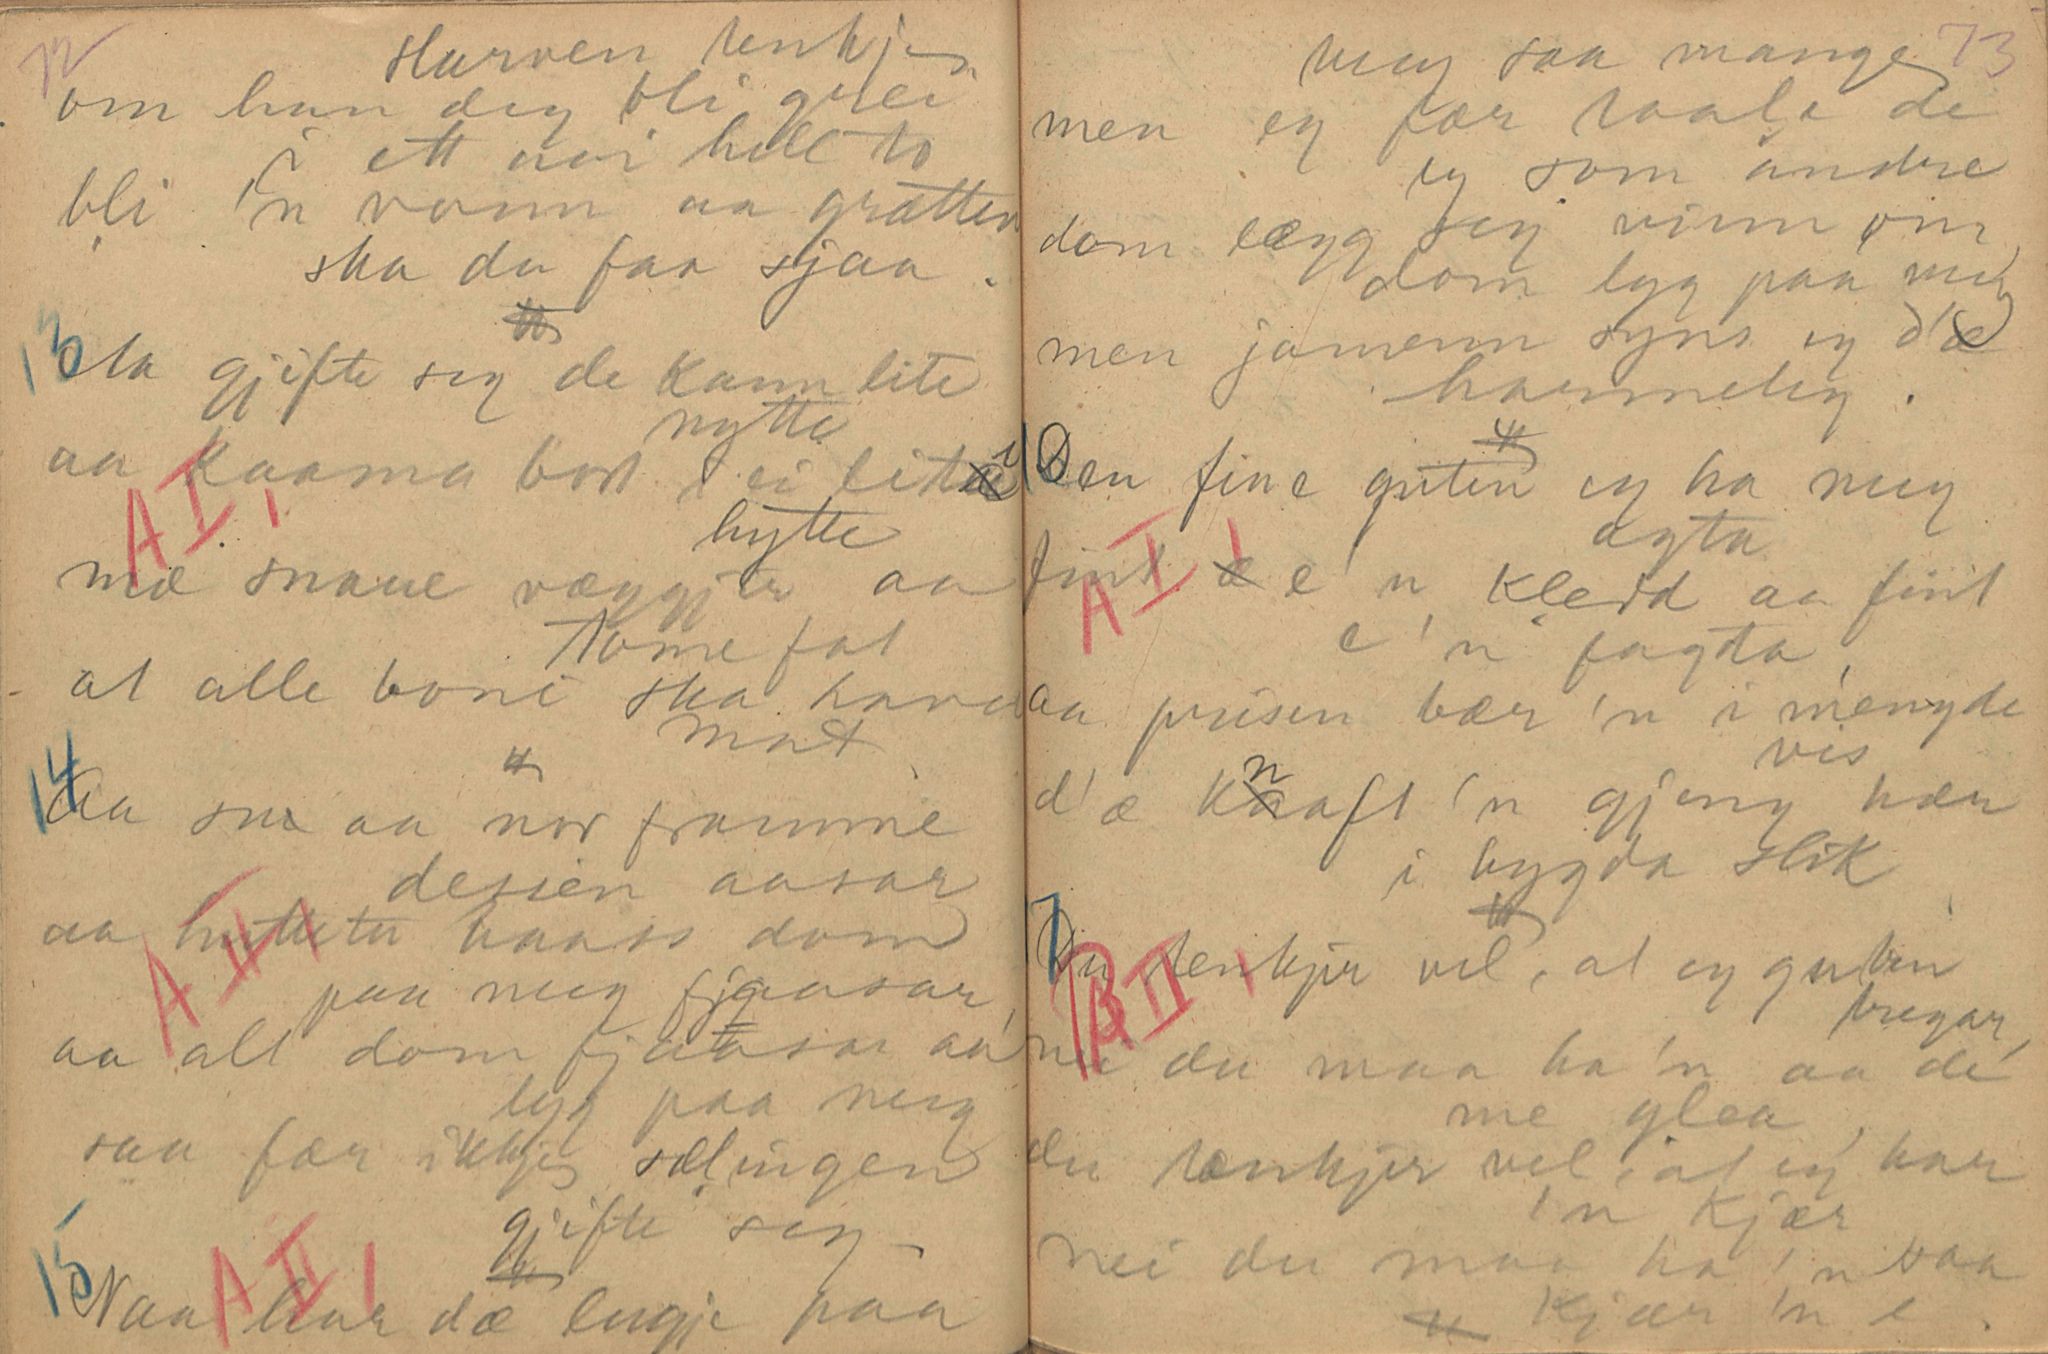 72
slurven tenkjer
om han deg bli grei
i ett aar hell to
bli 'n vonn aa gratten
ska du faa sjaa.
13
Aa gjifte seg de kann lite
nytte
aa kaama bort i ei liti
AI,
hytte
mæ snaue væggjer aa
tome fat
at alle boni ska hava
mat
14
Aa sør aa nor framme
desien aasar
aa hæaass dom
AII,
paa meg fjaasar,
aa alt dom fjaasar aa
lyg paa meg
saa fær ikkje sælingen
gjifte seg
15
AII,
Naa har dæ lugje paa
73
meg saa mange
men eg fær taale de
eg som andre
dom lægg seg vinn om
dom lyg paa meg
men jamenn syns eg d'æ
harmeleg.
Den fine guten eg ha meg
agta
AI,
fint e 'n kledd aa fint
e 'n fagta,
aa prisen bær 'n i mengde
vis
d'æ knaft 'n gjeng hær
i bygda slik
17
Du tenkjer vel, at eg guten
BII,
tregar,
nei du maa ha 'n aa de
me glea,
du tænkjer vel, at eg har
'n kjær
nei du maa ha 'n saa
kjær 'n e.